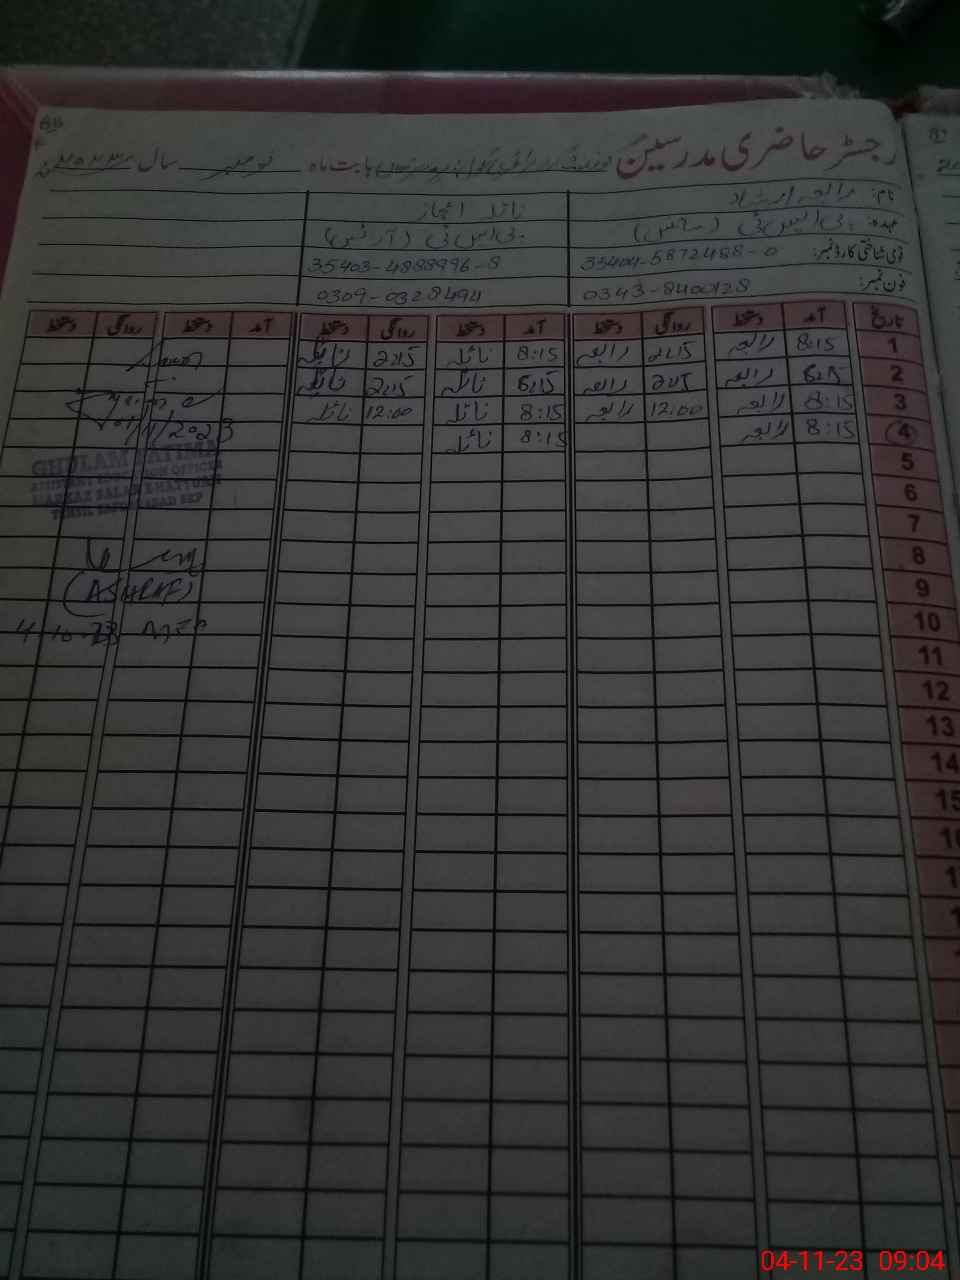 رجسٹر حاضری مدرسین بابت ماہ نومبر سال ۲۰۲۳ء
نام: رابعہ ارشاد نائلہ اعجاز
عہدہ: پی ایس ٹی (سائنس) پی ایس ٹی (آرٹس)
قومی شناختی کارڈ نمبر: 35404-5872488-0 35403-4888996-8
فون نمبر: 0343-8400128 0309-0328494
تاریخ آمد دستخط روانگی دستخط آمد دستخط روانگی دستخط آمد دستخط روانگی دستخط
1 8:15 رابعہ 2:15 رابعہ 8:15 نائلہ 2:15 نائلہ
2 8:15 رابعہ 2:15 رابعہ 8:15 نائلہ 2:15 نائلہ
3 8:15 رابعہ 12:00 رابعہ 8:15 نائلہ 12:00 نائلہ
4 8:15 رابعہ 8:15 نائلہ
01/11/2023
GHULAM FATIMA
ASSISTANT EDUCATION OFFICER
MARKAZ SALAR BHATTIAN
TEHSIL SAFDARABAD SKP
(ASHRAF)
4-10-23 MEA
5
6
7
8
9
10
11
12
13
14
15
04-11-23 09:04